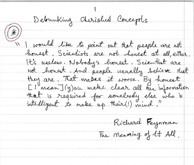 1
Debunking Cherished Concepts
"I would like to point out that people are not
honest. Scientists are not honest at all, either.
It's useless. Nobody's honest. Scientists are
not honest. And people usually believe that
they are. That makes it worse. By honest
I mean you make clear all the information
that is required for somebody else who is
intelligent to make up their mind."
Richard Feynman
The Meaning of It All.